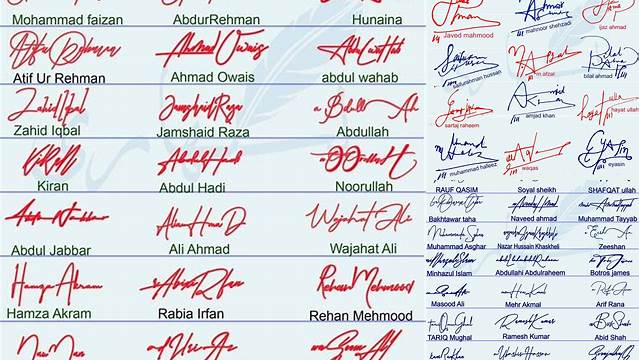 Mohammad faizan AbdurRehman Hunaina
Atif Ur Rehman Ahmad Owais abdul wahab
Zahid Iqbal Jamshaid Raza Abdullah
Kiran Abdul Hadi Noorullah
Abdul Jabbar Ali Ahmad Wajahat Ali
Hamza Akram Rabia Irfan Rehan Mehmood
Javed mahmood mahnoor shehzadi ijaz ahmad
saifurrahman hussain m afzal bilal ahmad
sartaj raheem amjad khan hayat ullah
muhammad hafeez waqas eyasin
RAUF QASIM Soyal sheikh SHAFQAT ullah
Bakhtawar taha Naveed ahmad Muhammad Tayyab
Muhammad Asghar Nazar Hussain Khaskheli Zeeshan
Minhazul Islam Abdullahi Abdulraheem Botros james
Masood Ali Mehr Akmal Arif Rana
TARIQ Mughal Ramesh Kumar Abid Shah